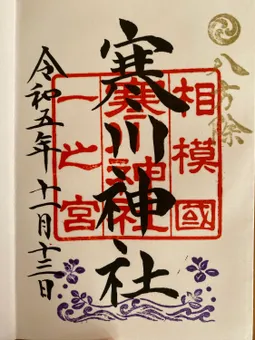 八方除
相模國
寒川神社
一之宮
寒川神社
令和五年 十一月十三日